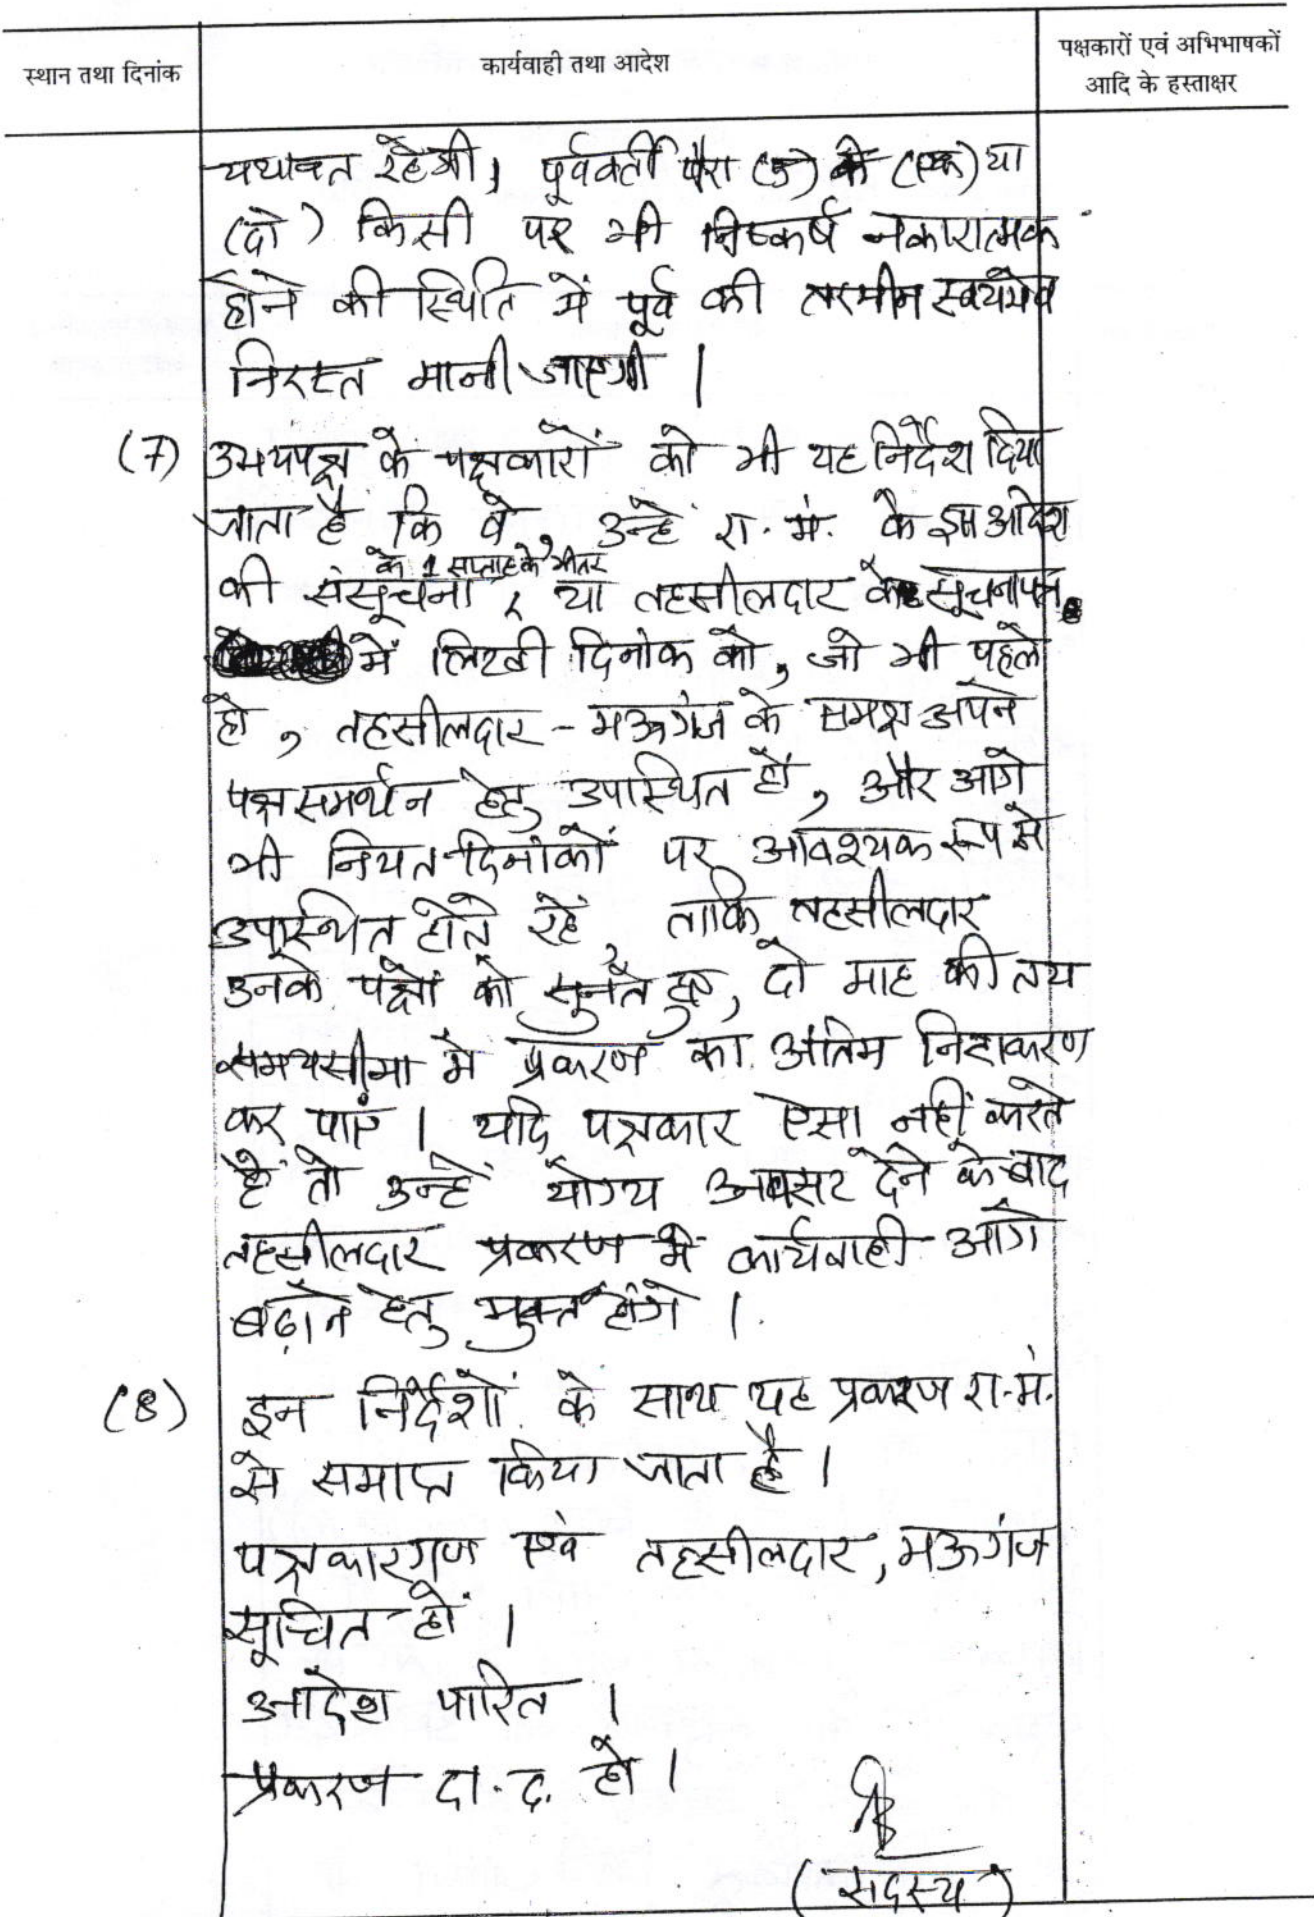 स्थान तथा दिनांक
कार्यवाही तथा आदेश
पक्षकारों एवं अभिभाषकों
आदि के हस्ताक्षर
यथावत रहेगी। पूर्ववर्ती पैरा (5) के (एक) या
(दो) किसी पर भी निष्कर्ष नकारात्मक
होने की स्थिति में पूर्व की तरमीम स्वयमेव
निरस्त मानी जाएगी ।
(7) उभयपक्ष के पक्षकारों को भी यह निर्देश दिया
जाता है कि वे, उन्हें रा.मं. के इस आदेश
के 1 सप्ताह के भीतर
की संसूचना, या तहसीलदार के सूचनापत्र
में लिखी दिनांक को, जो भी पहले
हो, तहसीलदार - मऊगंज के समक्ष अपने
पक्ष समर्थन हेतु उपस्थित हों, और आगे
भी नियत दिनांकों पर आवश्यक रूप से
उपस्थित होते रहें, ताकि तहसीलदार
उनके पक्षों को सुनते हुए, दो माह की तय
समयसीमा में प्रकरण का अंतिम निराकरण
कर पाएं । यदि पक्षकार ऐसा नहीं करते
हैं तो उन्हें योग्य अवसर देने के बाद
तहसीलदार प्रकरण में कार्यवाही आगे
बढ़ाने हेतु मुक्त होंगे ।
(8) इन निर्देशों के साथ यह प्रकरण रा.मं.
से समाप्त किया जाता है ।
पक्षकारगण एवं तहसीलदार, मऊगंज
सूचित हों ।
आदेश पारित ।
प्रकरण दा.द. हो ।
(सदस्य)